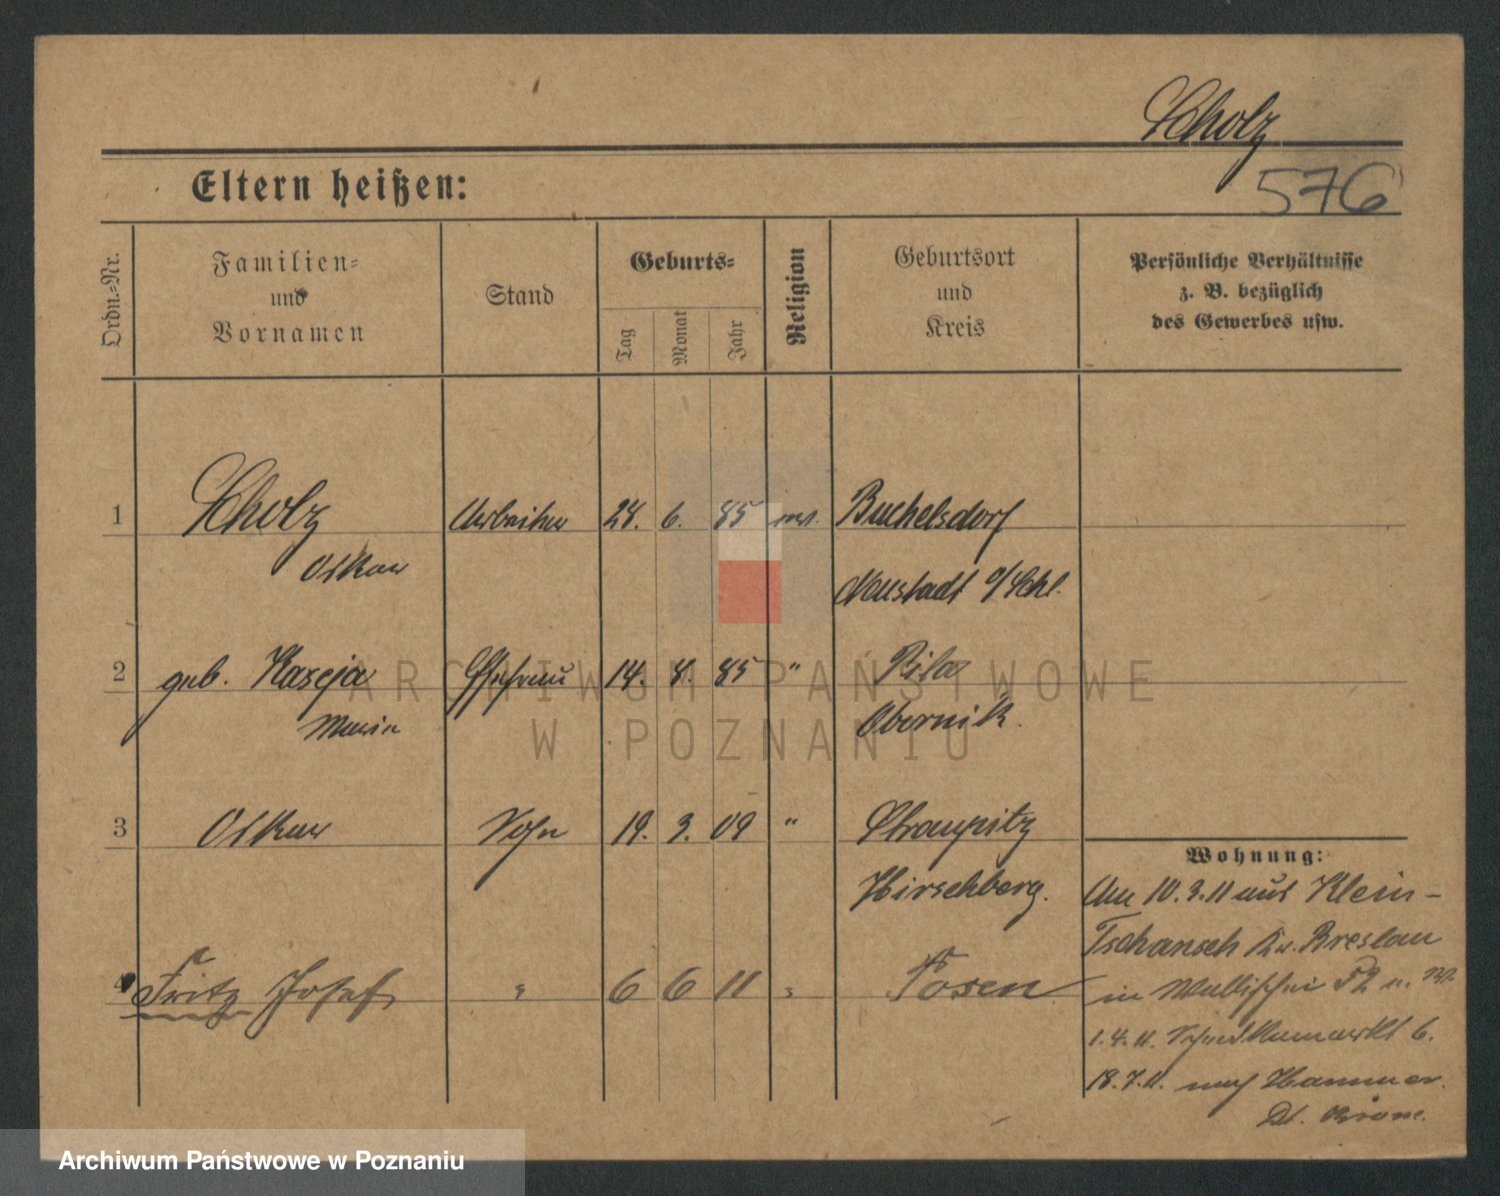 Scholz
576
Eltern heißen:
Ordn.-Nr.
Familien-
und
Vornamen
Stand
Geburts-
Tag
Monat
Jahr
Religion
Geburtsort
und
Kreis
Persönliche Verhältnisse
z. B. bezüglich
des Gewerbes usw.
1 Scholz Arbeiter 28. 6. 85 Buchelsdorf
Oskar Neustadt o/Schl.
2 geb. Kaseja Ehefrau 14. 8. 85 " Pila
Maria Obornik.
3 Oskar Sohn 19. 3. 09 " Straupitz
Hirschberg.
4 Fritz Josef " 6 6 11 " Posen
Wohnung:
Am 10.3.11 aus Klein-
Tschansch Kr. Breslau
in Wallischei
1.4.11. 6.
18.7.11. nach Hammer
Dt. Krone.
ARCHIWUM PAŃSTWOWE
W POZNANIU
Archiwum Państwowe w Poznaniu